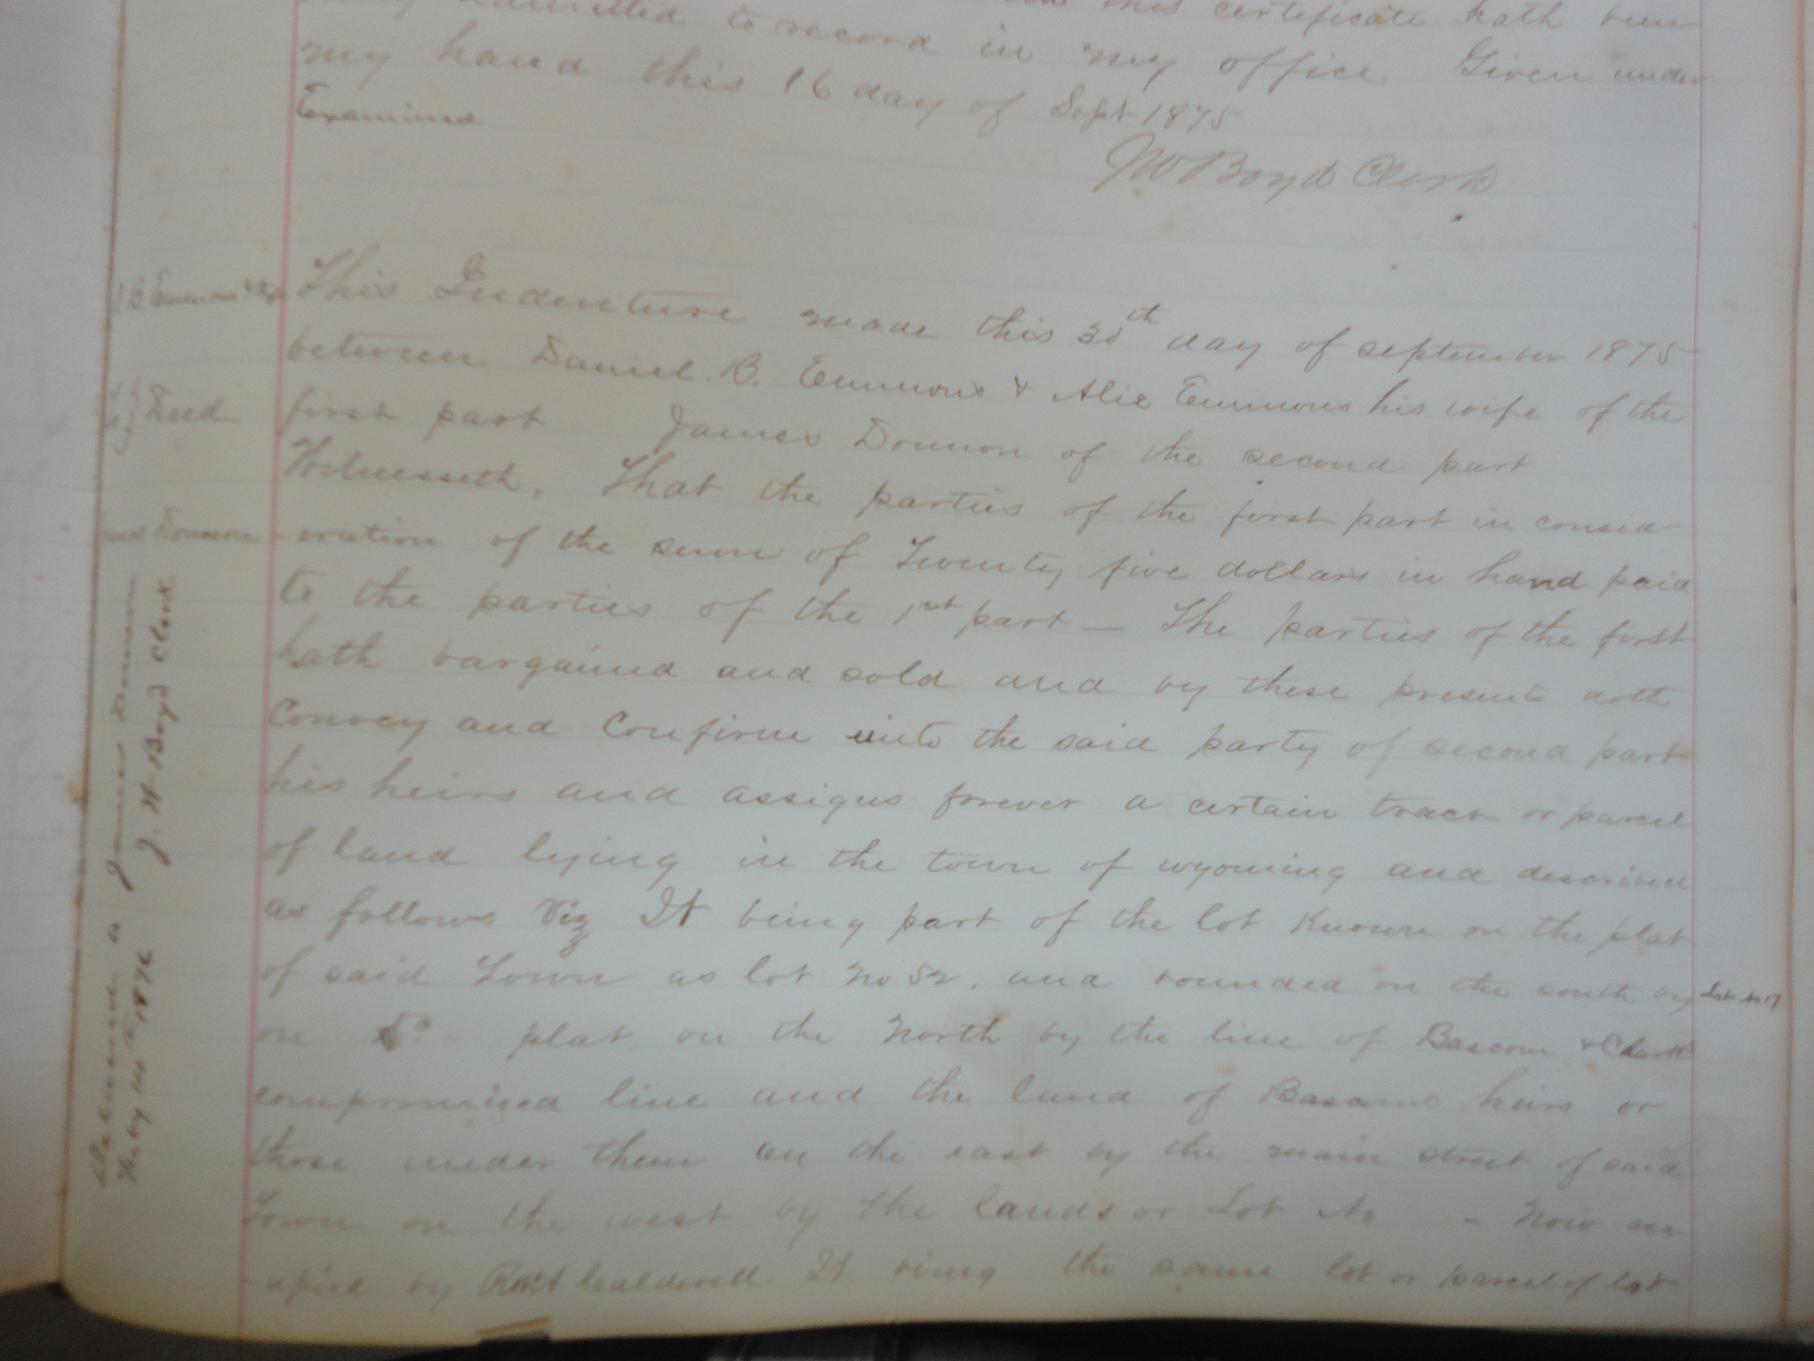 admitted to record in my office. Given under
my hand this 16 day of Sept 1875
Examined
JW Boyd Clerk
This Indenture made this 30th day of september 1875
between Daniel. B. Emmons & Alie Emmons his wife of the
first part James Donnon of the second part
Witnesseth, That the parties of the first part in consid-
-eration of the sum of Twenty five dollars in hand paid
to the parties of the 1st part — The parties of the first
hath bargained and sold and by these presents doth
Convey and Confirm unto the said party of second part
his heirs and assigns forever a certain tract or parcel
of land lying in the town of wyoming and described
as follows Viz It being part of the lot Known on the plat
of said Town as lot No 52. and bounded on the south by Lot No 17
on Do plat on the North by the line of Bascom & Clark
compromised line and the land of Bascom heirs or
those under them on the east by the main street of said
Town on the west by the lands or Lot No - Now oc
-upied by Robt Caldwell It being the same lot or parcel of lot
B Emmons &
Deed
Donnon
Delivered to James Donnon
1876 J. W. Boyd Clerk